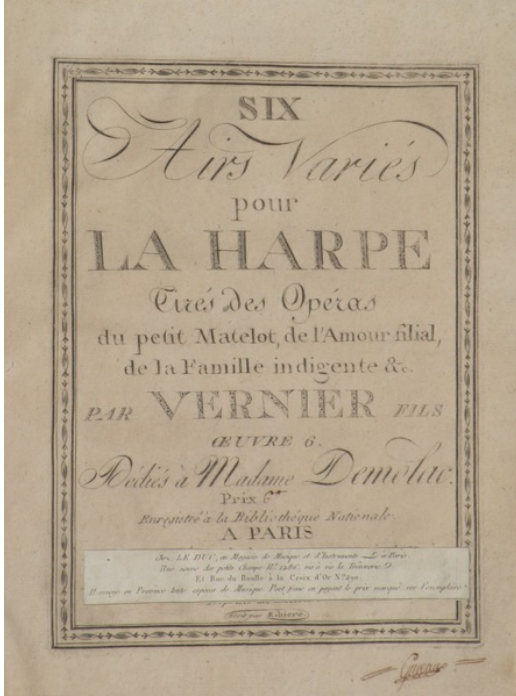 SIX
Airs Variés
pour
LA HARPE
Tirés Des Opéras
du petit Matelot, de l'Amour filial,
de la Famille indigente &c.
PAR VERNIER FILS
ŒUVRE 6.
Dédiés à Madame Demolac.
Prix 6
Enregistré à la Bibliothéque Nationale
A PARIS
Chez LE DUC, au Magasin de Musique et d'Instruments à Paris
Rue neuve des petits Champs Nº. 1286. vis à vis la Trésorerie
Et Rue du Roulle à la Croix d'Or Nº 290.
Il envoye en Province toute espece de Musique Port franc en payant le prix marqué sur l'exemplaire
Gravé par Ribière